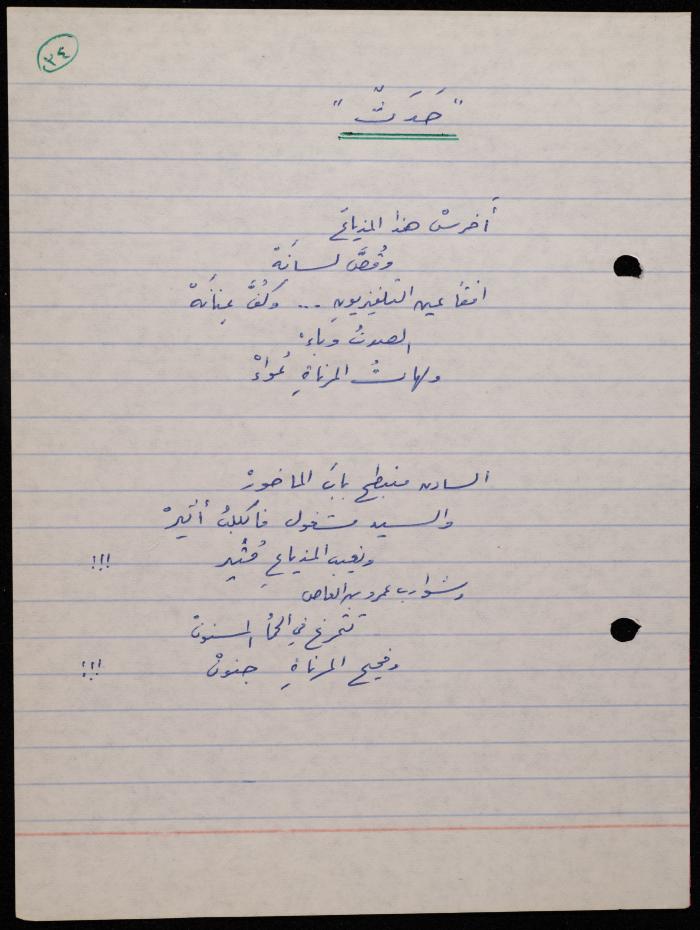 ٣٤
"حَدَثْ"
أَخرسْ هذا المذياعَ
وقُصَّ لسانَهْ
افقأ عين التلفزيونِ ... وكُفَّ عِنانَهْ
الصوتُ وباءْ
ولهاثُ المرناةِ عُواءْ
السادن منبطح بابَ الماخورْ
والسيد مشغول فالكلبُ أثيرْ
ونعيب المذياعِ مُثير !!!
وشوارب عمرو بن العاص
تتمرغ في الحمأ المسنونْ
وفحيح المرناةِ جنونْ !!!